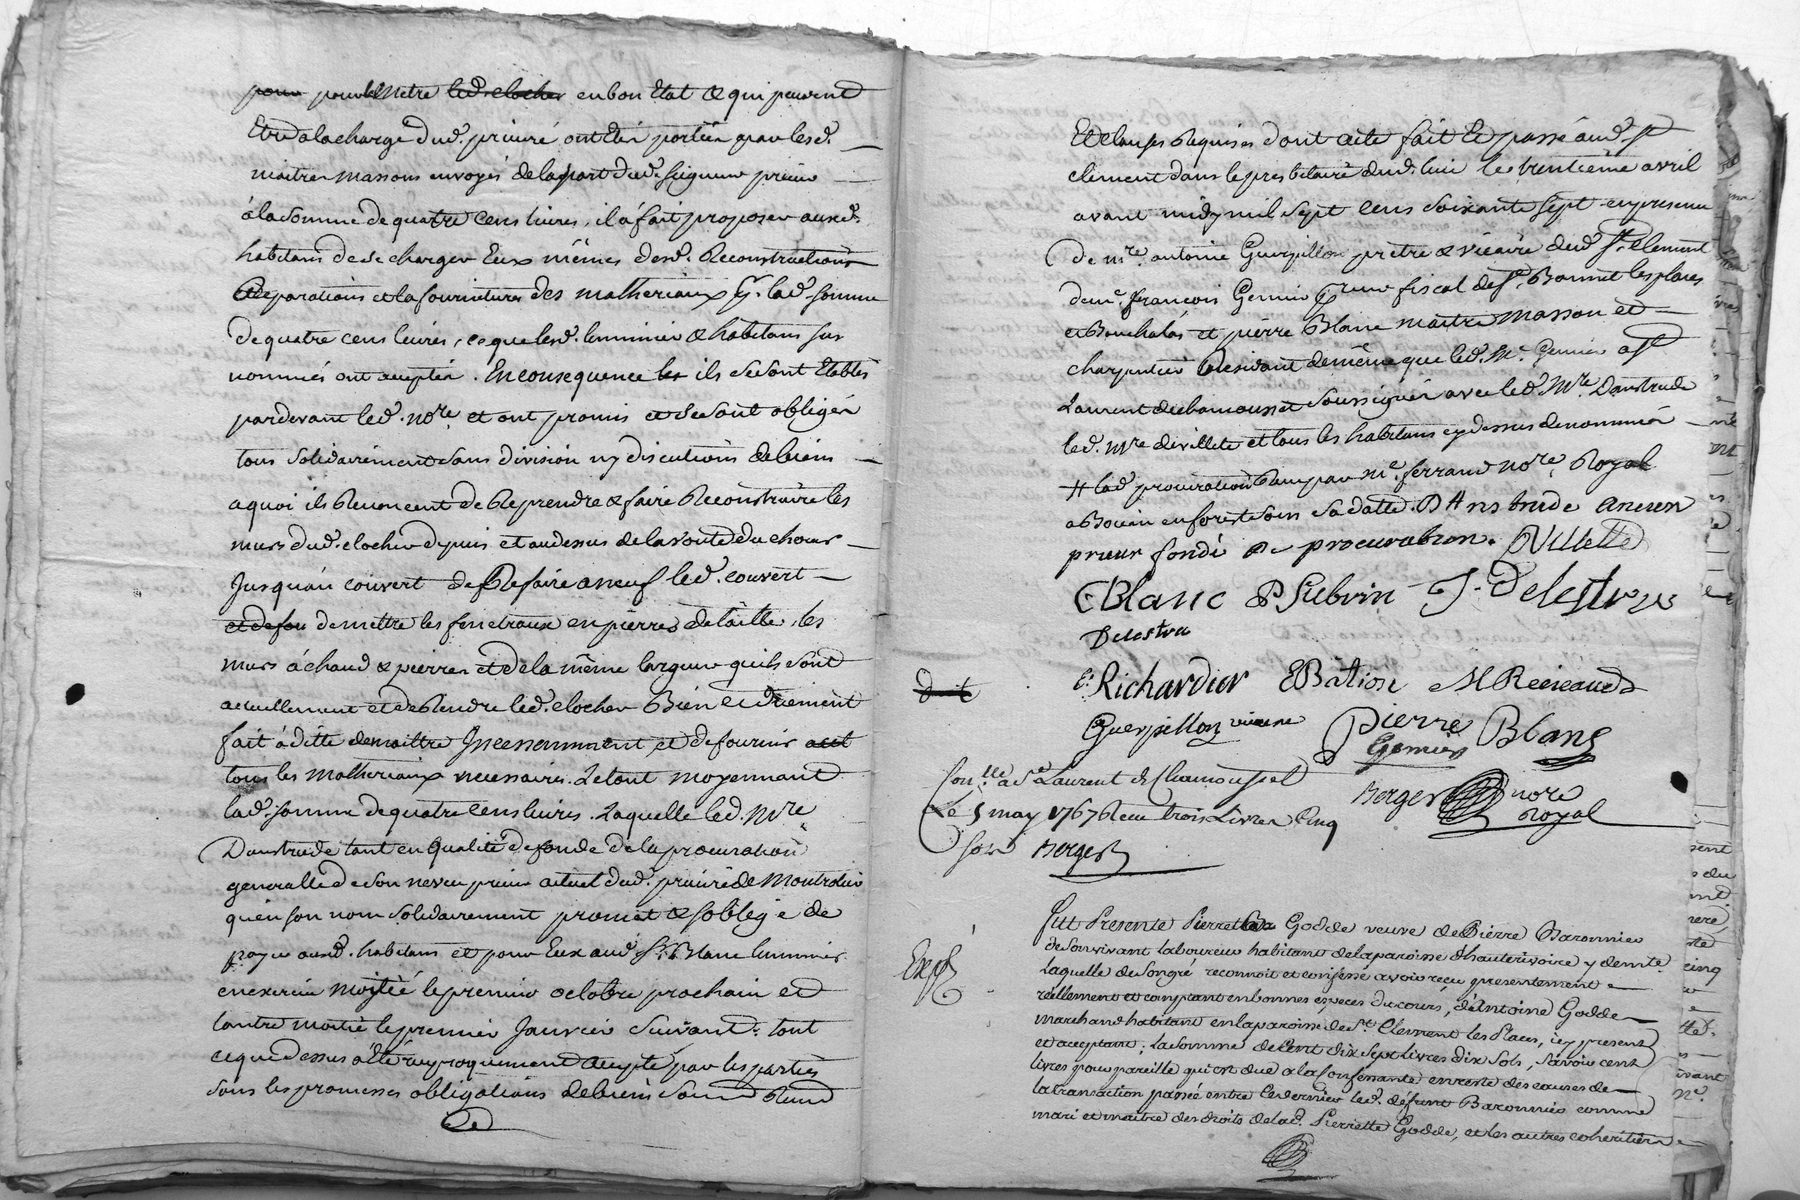 pour pour le Metre led. clocher en bon Etat & qui peuvent
Etre a la charge dud. prieuré ont Eté portées par lesd.
maitres massons envoyés de la part dud. seigneur prieur
à la somme de quatre cens livres, il a fait proposer auxd.
habitans de se charger Eux mêmes desd. Reconstructions
Reparations et la fourniture des matheriaux pr. lad. somme
de quatre cens livres, ce que lesd. luminier & habitans sus
nommés ont accepté. En consequence les ils se sont Etablis
pardevant led. nore. et ont promis et se sont obligés
tous solidairement sans division ny discutions de biens
a quoi ils Renoncent de Reprendre & faire Reconstruire les
murs dud. clocher depuis et au dessus de la voute du choeur
Jusqu'au couvert de Refaire a neuf led. couvert
et de fou de mettre les fenetraux en pierres de taille, les
murs à chaud & pierres et de la même largeur qu'ils sont
actuellement et de Rendre led. clocher Bien et duement
fait à ditte de maittre Incessamment et de fournir
tous les matheriaux necessaires. Le tout moyennant
lad. somme de quatre cens livres. Laquelle led. Mre
Danstrude tant en qualité de fondé de la procuration
generalle de son neveu prieur actuel dud. prieuré de Montrotier
qu'en son nom solidairement promet & s'oblige de
payer auxd. habitans et pour Eux aud. Sr. Blanc luminier
en exercice moitié le premier octobre prochain et
l'autre moitié le premier Janvier suivant. tout
ce que dessus a été reciproquement accepté par les parties
sous les promesses obligations de biens
Et clauses Requises dont acte fait Et passé aud. St
clement dans le presbitaire dud. lieu le trentième avril
avant midy mil sept cens soixante sept en presence
de mre. antoine Guerpillon prêtre & vicaire dud. St. Clement
de me. françois Genier Preur fiscal de St. Bonnet les places
et Bouchalas et pierre Blanc maître masson et
charpentier Residant de même que led. Me. Genier a St
Laurent de chamousset soussignés avec led. Mre Danstrude
led. Mre de villete et tous les habitans cy dessus denommés
# lad procuration Reçue par me. ferrand nore Royal
a Boien en forest sous sa datte. DAnstrude ancien
prieur fondé de procuration. DVillette
CBlanc P Subrin J. Delestra
Delestra
C. Richardier EBâtion M Recicaud
Guerpillon vicaire Pierre Blanc
Genier
Con.lle a St Laurent de Chamousset
Le 5 may 1767 Reçu trois Livres Cinq
sols Berger
Berger nore
Royal
Exp.
Fut Presente Pierrette Godde veuve de Pierre Baronnier
de son vivant laboureur habitant de la paroisse d'hauterivoire y demte.
Laquelle de son gré reconnoit et confesse avoir reçu presentement
réellement et comptant en bonnes espèces du cours, d'Antoine Godde
marchand habitant en la paroisse de St. Clement les Places, icy present
et acceptant, la somme de Cent dix sept livres dix sols, savoir cent
livres pour pareille qui est due a la Confessante en reste des causes de
la transaction passée entre Ce dernier led. défunt Baronnier comme
mari et maitre des droits de lad. Pierrette Godde, et les autres coheritiers